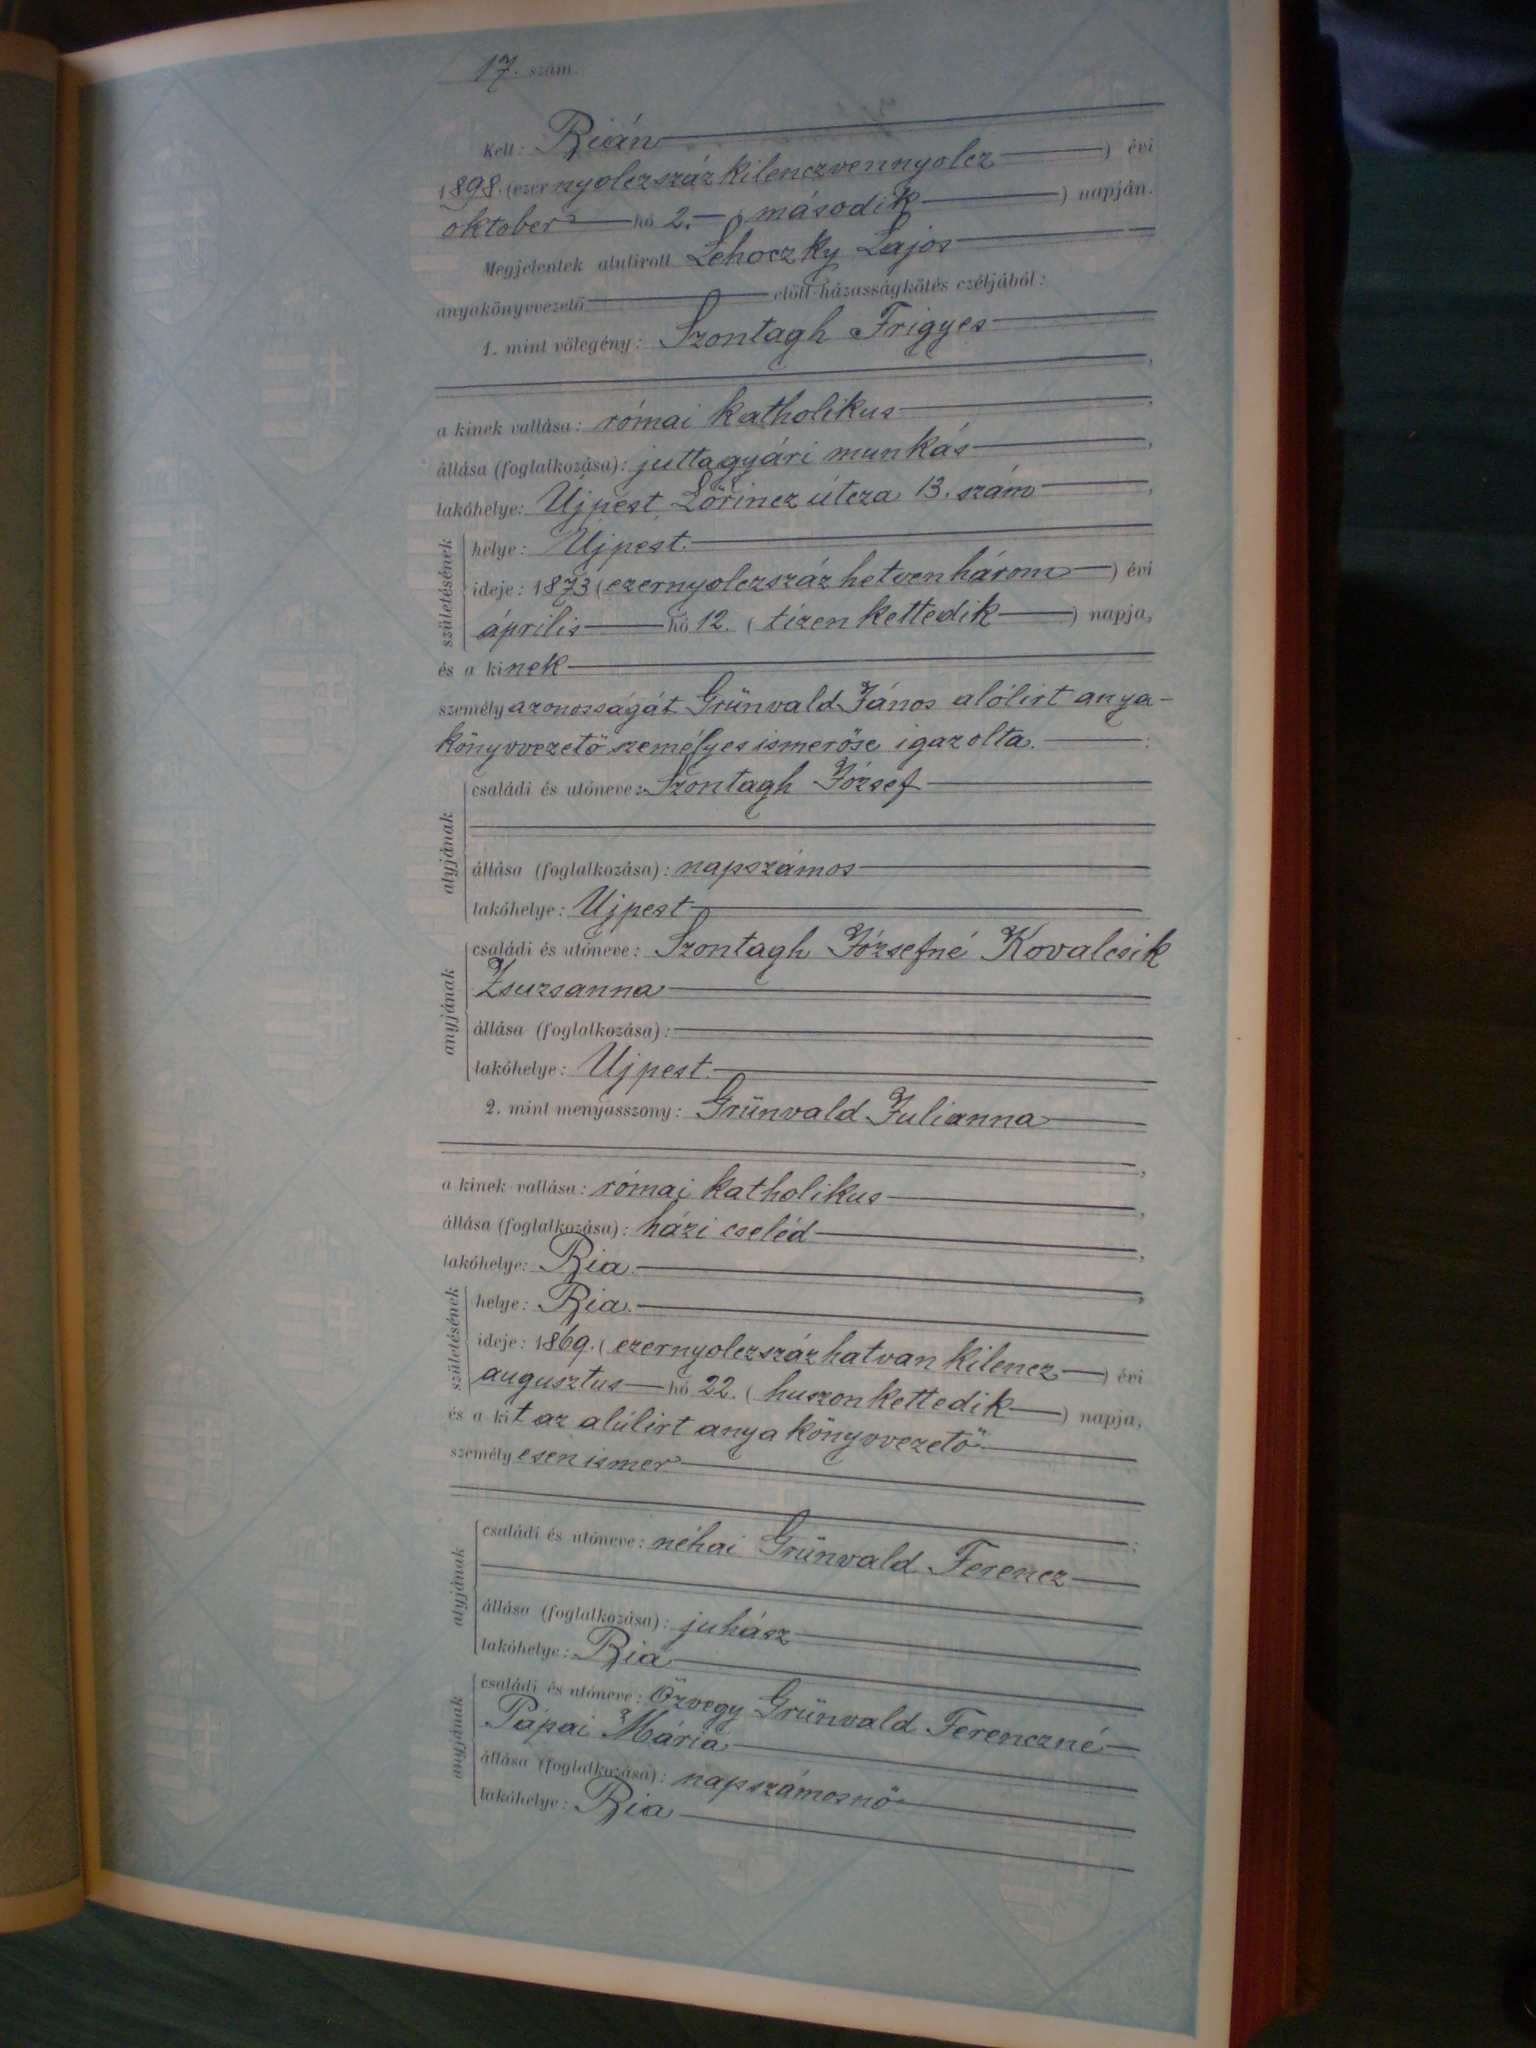 17. szám.
Kelt: Rián
1898. (ezernyolczszázkilenczvennyolcz) évi
október hó 2. (második) napján.
Megjelentek alulirott Lehoczky Lajos
anyakönyvvezető előtt házasságkötés czéljából:
1. mint vőlegény: Szontagh Frigyes
a kinek vallása: római katholikus,
állása (foglalkozása): juttagyári munkás,
lakóhelye: Újpest, Lőrincz útcza 13. szám,
születésének
helye: Újpest.
ideje: 1873 (ezernyolczszáz hetvenhárom) évi
április hó 12. (tizenkettedik) napja,
és a kinek
személyazonosságát Grünvald János alólirt anya-
könyvvezető személyes ismerőse igazolta.
atyjának
családi és utóneve: Szontagh József
állása (foglalkozása): napszámos
lakóhelye: Ujpest
anyjának
családi és utóneve: Szontagh Józsefné Kovalcsik
Zsuzsanna
állása (foglalkozása):
lakóhelye: Ujpest.
2. mint menyasszony: Grünvald Julianna
a kinek vallása: római katholikus,
állása (foglalkozása): házi cseléd,
lakóhelye: Ria.
születésének
helye: Ria.
ideje: 1869. (ezernyolczszázhatvankilencz) évi
augusztus hó 22. (huszonkettedik) napja,
és a kit az alúlirt anyakönyvvezető
személyesen ismer
atyjának
családi és utóneve: néhai Grünvald Ferencz
állása (foglalkozása): juhász
lakóhelye: Ria
anyjának
családi és utóneve: Özvegy Grünvald Ferenczné
Pápai Mária
állása (foglalkozása): napszámosnő
lakóhelye: Ria